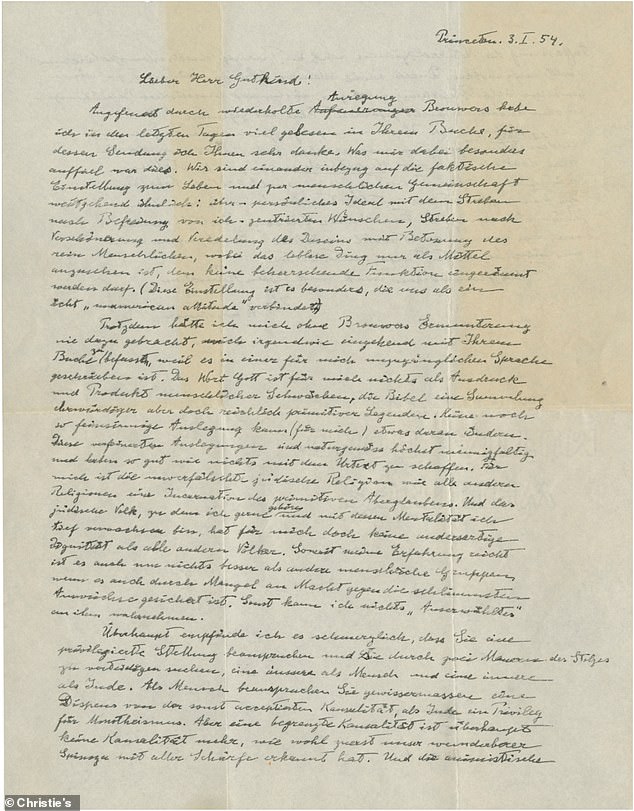 Princeton. 3. I. 54.
Lieber Herr Gutkind!
Anregung
Angefeuert durch wiederholte Brouwers habe
ich in den letzten Tagen viel gelesen in Ihrem Buche, für
dessen Sendung ich Ihnen sehr danke. Was mir dabei besonders
auffiel war dies. Wir sind einander inbezug auf die faktische
Einstellung zum Leben und zur menschlichen Gemeinschaft
weitgehend ähnlich: über-persönliches Ideal mit dem Streben
nach Befreiung von ich-zentrierten Wünschen, Streben nach
Verschönerung und Veredelung des Daseins mit Betonung des
rein Menschlichen, wobei das leblose Ding nur als Mittel
anzusehen ist, dem keine beherrschende Funktion eingeräumt
werden darf. (Diese Einstellung ist es besonders, die uns als ein
ächt „unamerican attitude" verbindet)
Trotzdem hätte ich mich ohne Brouwers Ermunterung
nie dazu gebracht, mich irgendwie eingehend mit Ihrem
Buche zu befassen, weil es in einer für mich unzugänglichen Sprache
geschrieben ist. Das Wort Gott ist für mich nichts als Ausdruck
und Produkt menschlicher Schwächen, die Bibel eine Sammlung
ehrwürdiger aber doch reichlich primitiver Legenden. Keine noch
so feinsinnige Auslegung kann (für mich) etwas daran ändern.
Diese verfeinerten Auslegungen sind naturgemäss höchst mannigfaltig
und haben so gut wie nichts mit dem Urtext zu schaffen. Für
mich ist die unverfälschte jüdische Religion wie alle anderen
Religionen eine Incarnation des primitiven Aberglaubens. Und das
jüdische Volk, zu dem ich gerne gehöre und mit dessen Mentalität ich
tief verwachsen bin, hat für mich doch keine andersartige
Dignität als alle anderen Völker. Soweit meine Erfahrung reicht
ist es auch um nichts besser als andere menschliche Gruppen,
wenn es auch durch Mangel an Macht gegen die schlimmsten
Auswüchse gesichert ist. Sonst kann ich nichts „Auserwähltes"
an ihm wahrnehmen.
Überhaupt empfinde ich es schmerzlich, dass Sie eine
privilegierte Stellung beanspruchen und Sie durch zwei Mauern des Stolzes
zu verteidigen suchen, eine äussere als Mensch und eine innere
als Jude. Als Mensch beanspruchen Sie gewissermassen eine
Dispens von der sonst acceptierten Kausalität, als Jude ein Privileg
für Monotheismus. Aber eine begrenzte Kausalität ist überhaupt
keine Kausalität mehr, wie wohl zuerst unser wunderbarer
Spinoza mit aller Schärfe erkannt hat. Und die animistische
© Christie's